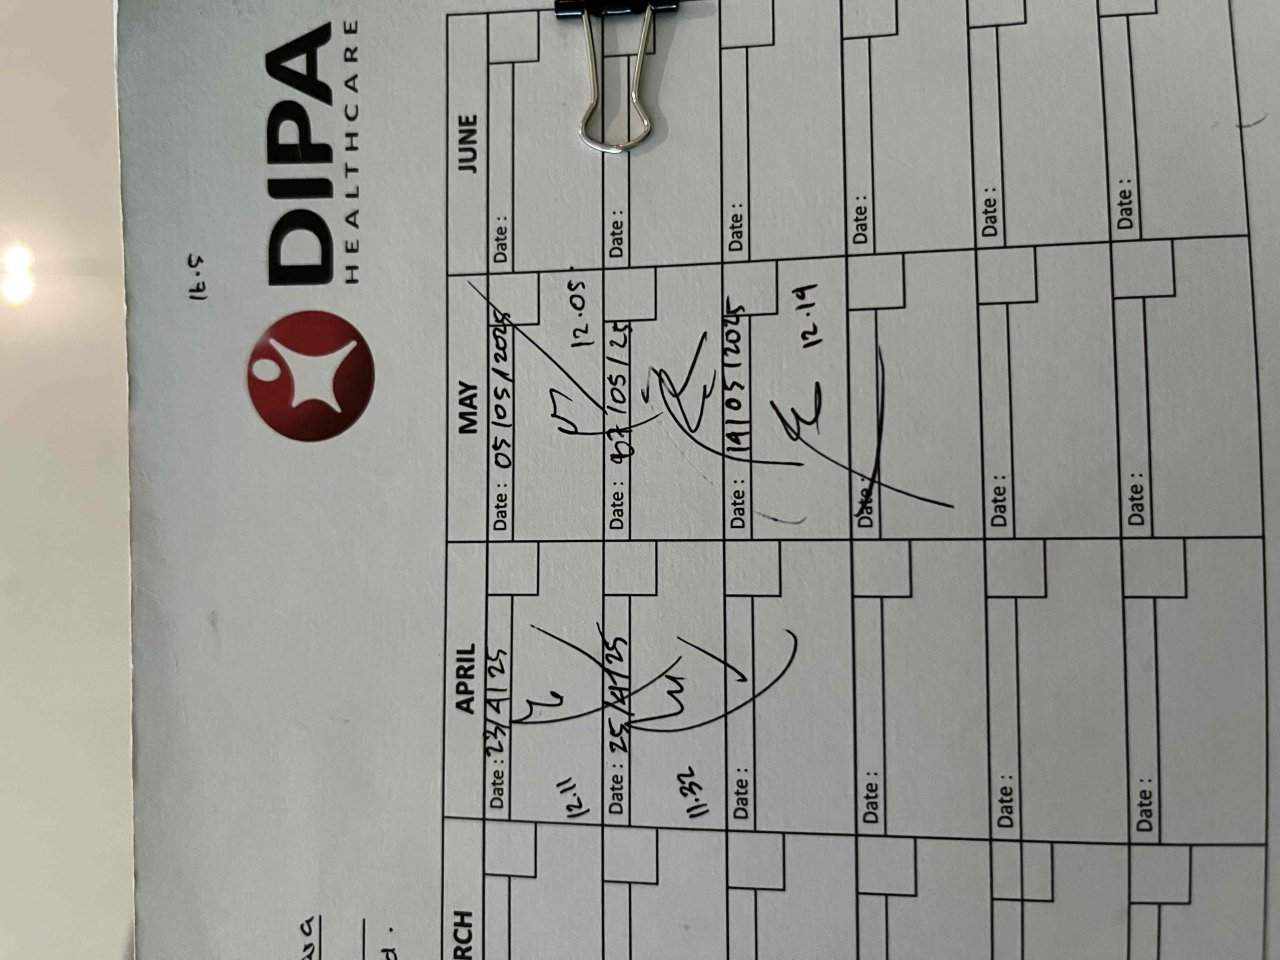 16.5
DIPA
HEALTHCARE
RCH APRIL MAY JUNE
Date: 23/4/25 Date: 05/05/2025 Date:
12.11 12.05
Date: 25/4/25 Date: 07/05/25 Date:
11.32
Date: Date: 19/05/2025 Date:
12.19
Date: Date: Date:
Date: Date: Date:
Date: Date: Date:
wa
d.